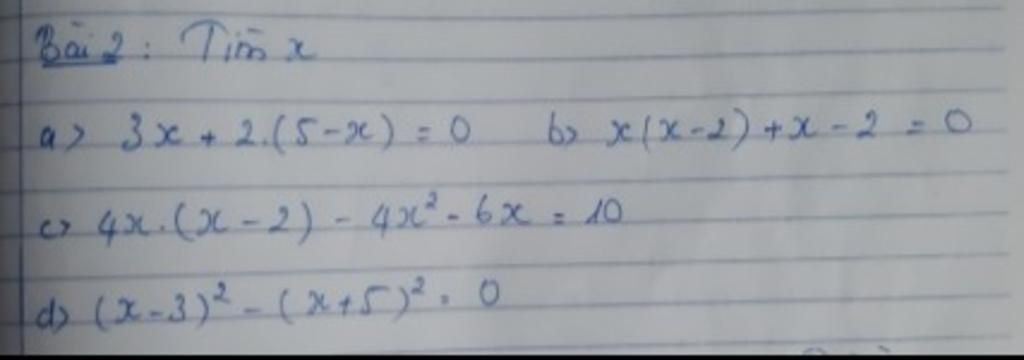 Bài 2 : Tìm x
a> 3x + 2.(5-x) = 0 b> x(x-2)+x-2 = 0
c> 4x.(x-2) - 4x² - 6x = 10
d> (x-3)² - (x+5)² = 0